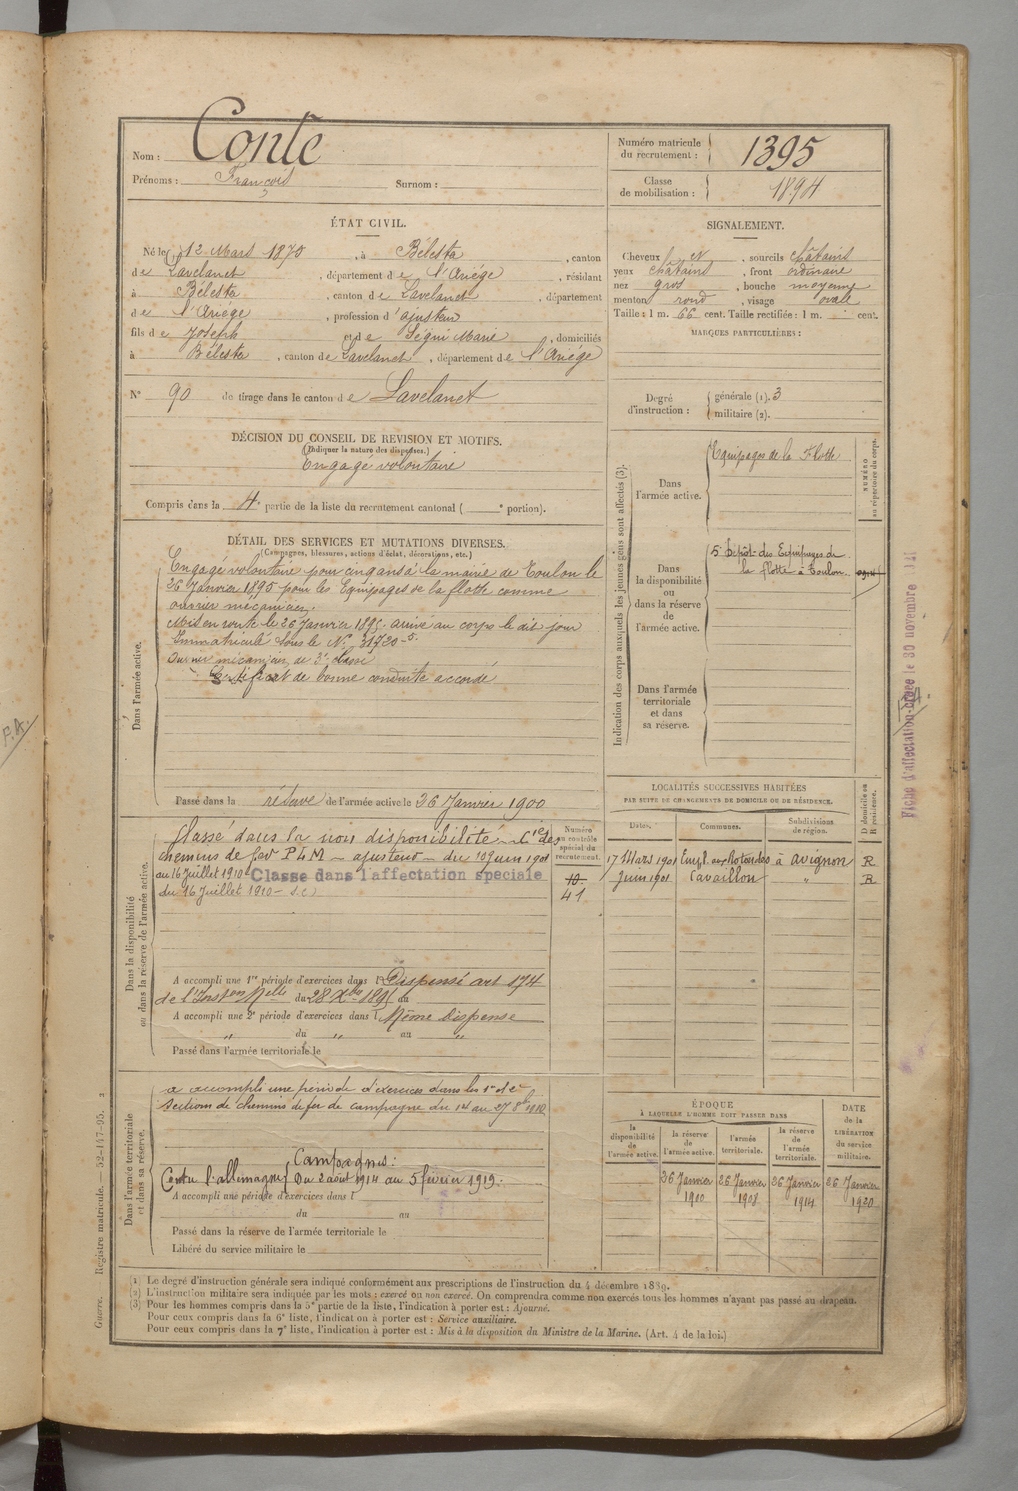 Nom : Conte
Prénoms : François Surnom :
Numéro matricule
du recrutement : 1395
Classe
de mobilisation : 1894
ÉTAT CIVIL.
Né le 12 Mars 1870, à Bélesta, canton
de Lavelanet, département de l'Ariége, résidant
à Bélesta, canton de Lavelanet, département
de l'Ariége, profession d'ajusteur
fils de Joseph et de Ségui Marie, domiciliés
à Bélesta, canton de Lavelanet, département de l'Ariége
N° 90 de tirage dans le canton de Lavelanet
DÉCISION DU CONSEIL DE REVISION ET MOTIFS.
(Indiquer la nature des dispenses.)
Engagé volontaire
Compris dans la 4e partie de la liste du recrutement cantonal ( e portion).
SIGNALEMENT.
Cheveux N, sourcils châtains
yeux châtains, front ordinaire
nez gros, bouche moyenne
menton rond, visage ovale
Taille : 1 m. 66 cent. Taille rectifiée : 1 m. cent.
MARQUES PARTICULIÈRES :
Degré
d'instruction :
générale (1). 3
militaire (2).
DÉTAIL DES SERVICES ET MUTATIONS DIVERSES.
(Campagnes, blessures, actions d'éclat, décorations, etc.)
Dans l'armée active.
Engagé volontaire pour cinq ans à la mairie de Toulon le
26 Janvier 1895 pour les Equipages de la flotte comme
ouvrier mécanicien.
Mis en route le 26 Janvier 1895. arrivé au corps le dit jour
Immatriculé sous le N° 31720-5
Ouvrier mécanicien de 3e classe
Certificat de bonne conduite accordé
Passé dans la réserve de l'armée active le 26 Janvier 1900
Indication des corps auxquels les jeunes gens sont affectés (3).
NUMÉRO
au répertoire du corps.
Dans
l'armée active.
Equipages de la Flotte
Dans
la disponibilité
ou
dans la réserve
de
l'armée active.
5e Dépôt des Equipages de
la flotte à Toulon
Dans l'armée
territoriale
et dans
sa réserve.
Fiche d'affectation placée le 30 novembre
F.A.
LOCALITÉS SUCCESSIVES HABITÉES
PAR SUITE DE CHANGEMENTS DE DOMICILE OU DE RÉSIDENCE.
Dates. Communes. Subdivisions
de région.
D domicile ou
R résidence.
17 Mars 1901 Empl. aux Rotondes à Avignon R
Juin 1901 Cavaillon " R
Dans la disponibilité
ou dans la réserve de l'armée active.
Numéro
au contrôle
spécial du
recrutement.
Classé dans la non disponibilité Cie des
chemins de fer PLM - ajusteur - du 10 juin 1901
au 16 juillet 1910 Classé dans l'affectation spéciale
du 16 Juillet 1910 -
10.
41
A accompli une 1re période d'exercices dans l Dispensé art 174
de l'Inston Melle du 28 Xbre 1895 au
A accompli une 2e période d'exercices dans l Même dispense
" du " au "
Passé dans l'armée territoriale le
Dans l'armée territoriale
et dans sa réserve.
a accompli une période d'exercices dans les
sections de chemins de fer de campagne du 1er au 27 8bre 1910
Campagnes :
Contre l'allemagne Du 2 août 1914 au 5 février 1919.
A accompli une période d'exercices dans l
du au
Passé dans la réserve de l'armée territoriale le
Libéré du service militaire le
ÉPOQUE
À LAQUELLE L'HOMME DOIT PASSER DANS
DATE
de la
LIBÉRATION
du service
militaire.
la
disponibilité
de
l'armée active.
la réserve
de
l'armée active.
l'armée
territoriale.
la réserve
de
l'armée
territoriale.
26 Janvier
1910
26 Janvier
1908
26 Janvier
1914
26 Janvier
1920
(1) Le degré d'instruction générale sera indiqué conformément aux prescriptions de l'instruction du 4 décembre 1889.
(2) L'instruction militaire sera indiquée par les mots : exercé ou non exercé. On comprendra comme non exercés tous les hommes n'ayant pas passé au drapeau.
(3) Pour les hommes compris dans la 5e partie de la liste, l'indication à porter est : Ajourné.
Pour ceux compris dans la 6e liste, l'indication à porter est : Service auxiliaire.
Pour ceux compris dans la 7e liste, l'indication à porter est : Mis à la disposition du Ministre de la Marine. (Art. 4 de la loi.)
Guerre. Registre matricule. — 52-147-95. 2